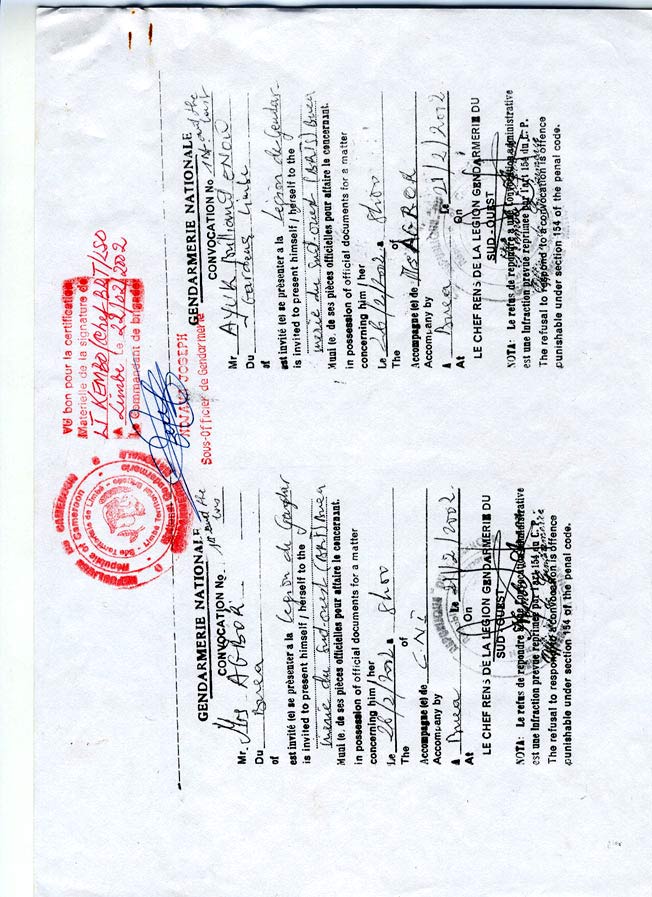 Vu bon pour la certification
Materielle de la signature de
LT KEMBO (Chef BRT/LSO
A Limbe le 22/02/2002
Le Commandant de brigade
JOSEPH
Sous-Officier de Gendarmerie
REPUBLIQUE DU CAMEROUN
Republic of Cameroon
GENDARMERIE NATIONALE
CONVOCATION No. 1st and the last
Mr. Mrs AGBOR
Du Buea
of
est invité (e) se présenter a la Légion de Gendar
is invited to present himself / herself to the
merie du Sud-ouest (BRT) Buea
Muni (e. de ses pièces officielles pour affaire le concernant.
in possession of official documents for a matter
concerning him / her
Le 26/2/2002 a 8hoo
The of
Accompagne (e) de C.N.I
Accompany by
A Buea Le 21/2/2002
At On
LE CHEF RENS DE LA LEGION GENDARMERIE DU
SUD-OUEST
NOTA: Le refus de repondre a une Convocation administrative
est une infraction prevue reprimee par l'art 154 du C. P.
The refusal to respond to a convocation is offence
punishable under section 154 of the penal code.
GENDARMERIE NATIONALE
CONVOCATION No 1st and the last
Mr AYUK Julliand ENOW
Du Gardens Limbe
of
est invité (e) se présenter a la Légion de Gendar
is invited to present himself / herself to the
merie du Sud-ouest (BRT) Buea
Muni (e. de ses pièces officielles pour affaire le concernant.
in possession of official documents for a matter
concerning him / her
Le 26/2/2002 a 8hoo
The of
Accompagne (e) de Mrs AGBOR
Accompany by
A Buea Le 21/2/2002
At On
LE CHEF RENS DE LA LEGION GENDARMERIE DU
SUD-OUEST
NOTA: Le refus de repondre a une Convocation administrative
est une infraction prevue reprimee par l'art 154 du C. P.
The refusal to respond to a convocation is offence
punishable under section 154 of the penal code.